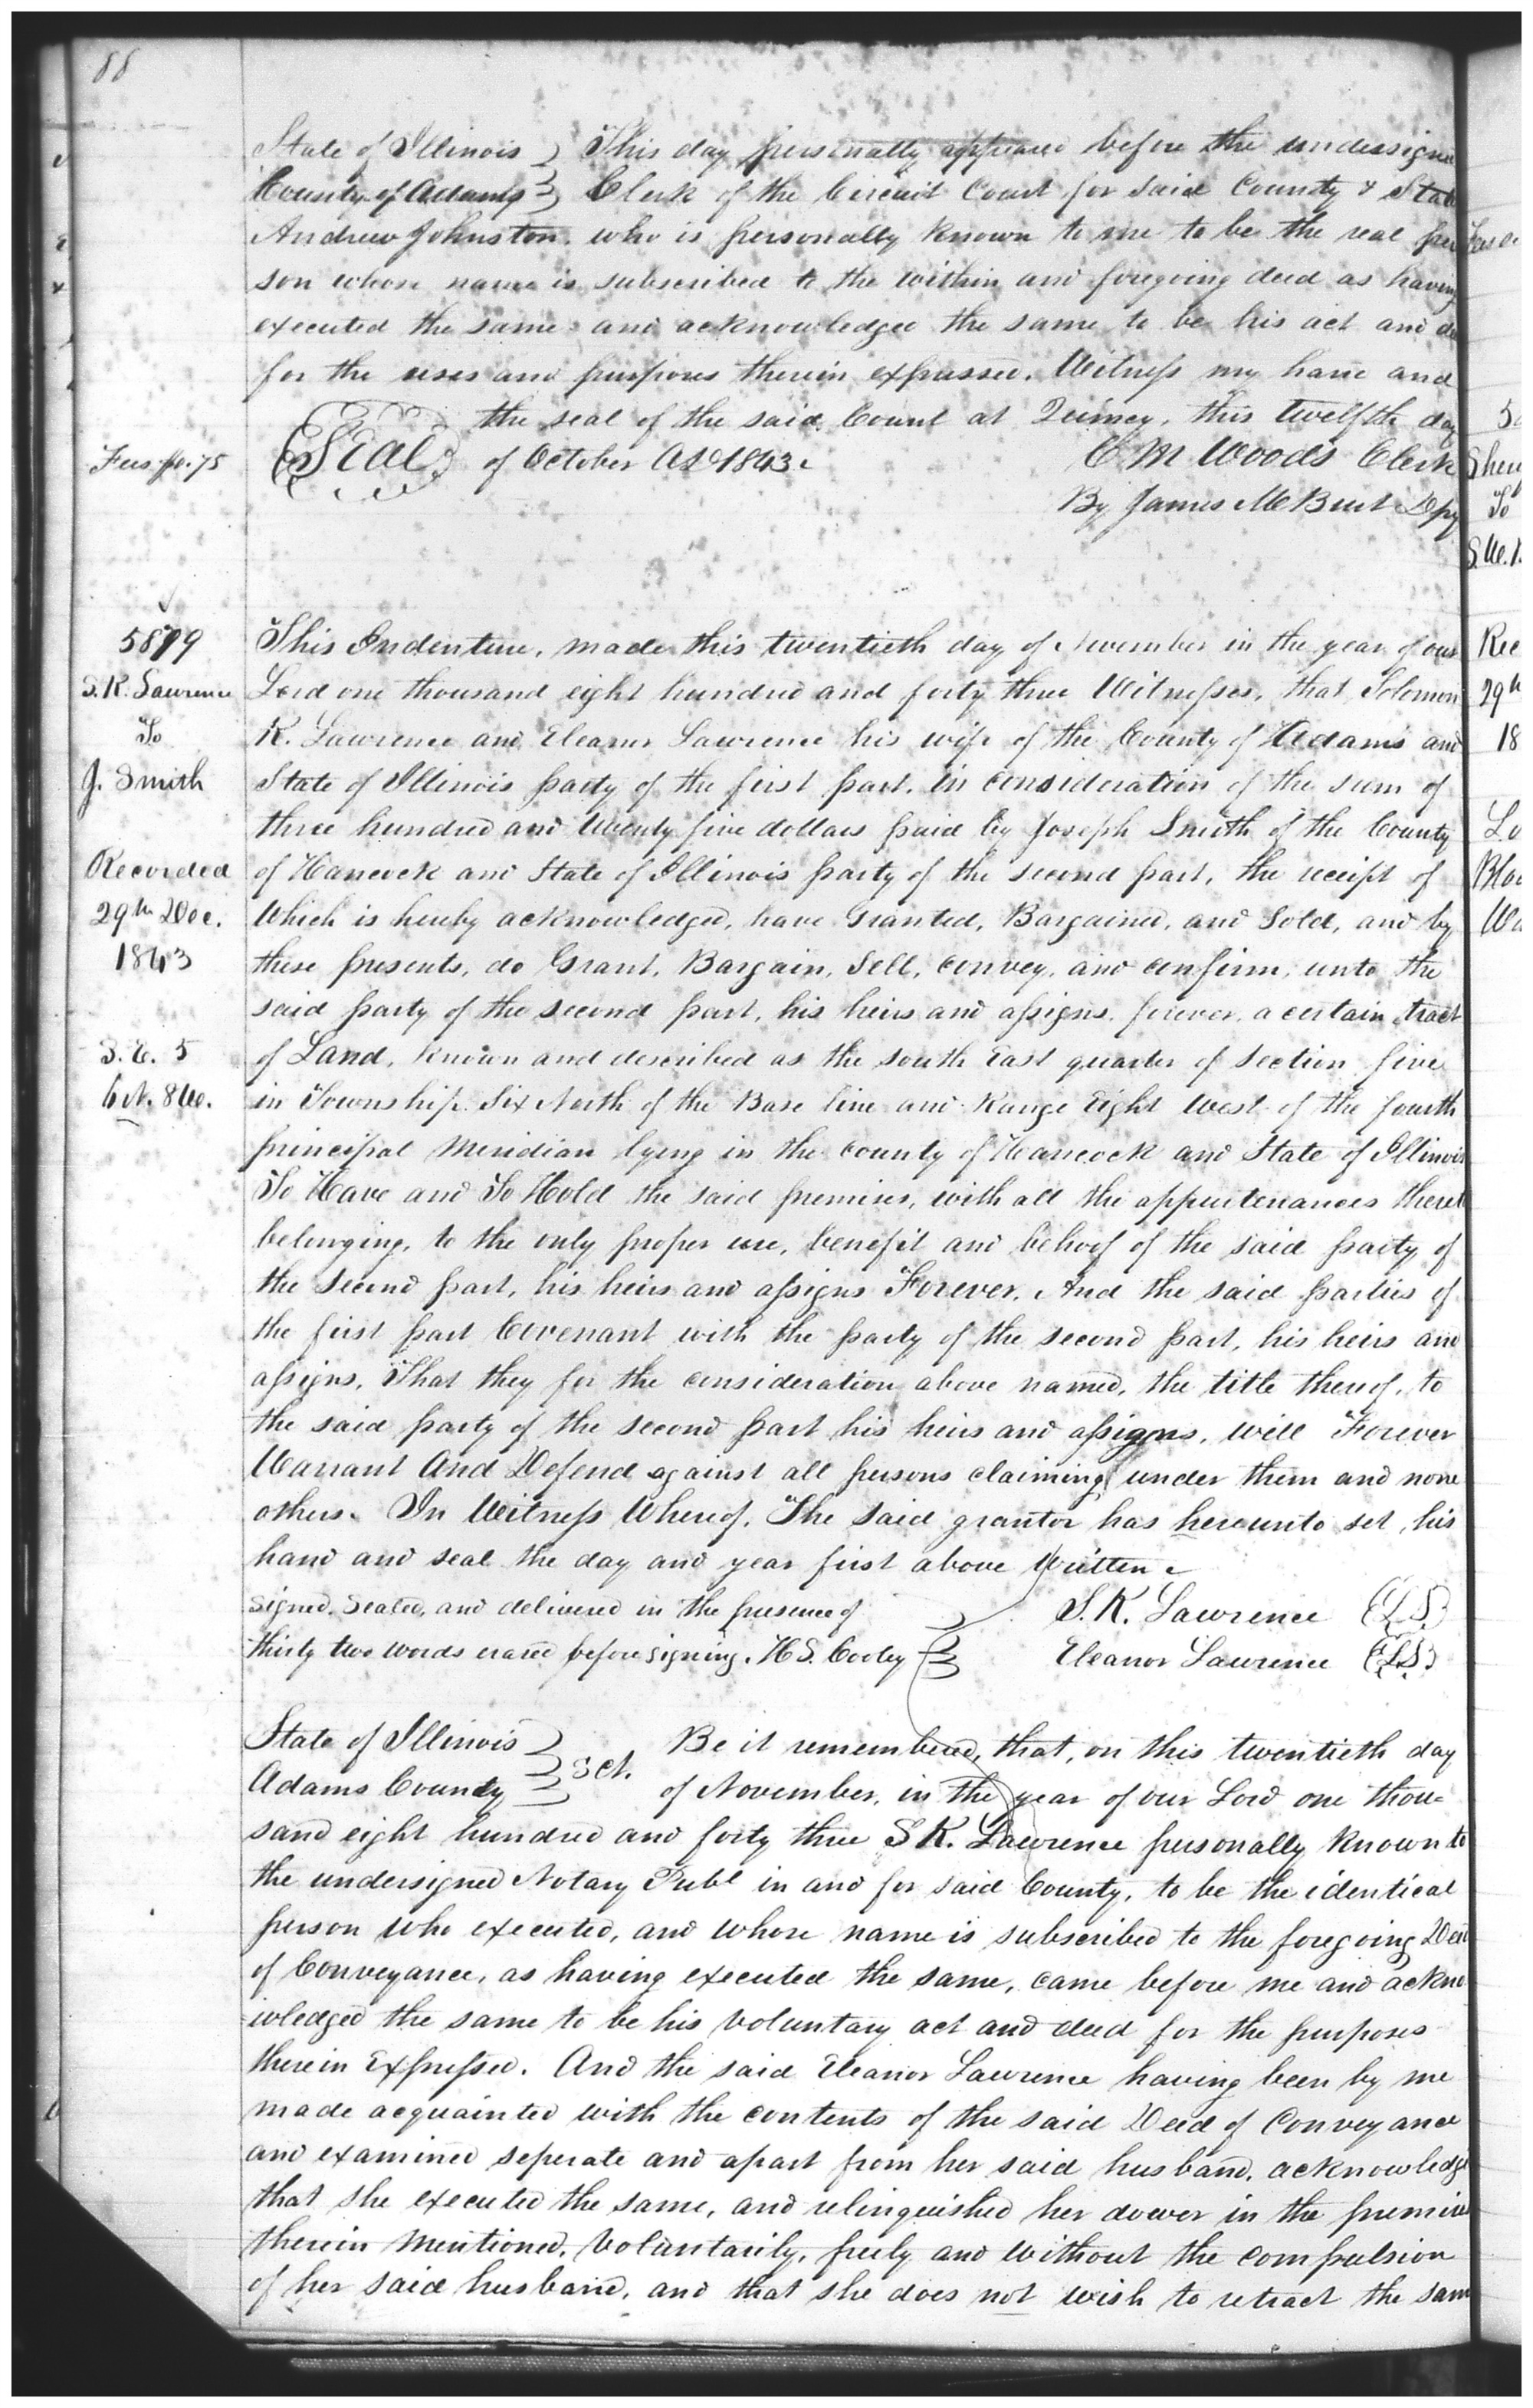 88
State of Illinois } This day personally appeared before the undersigne
County of Adams } Clerk of the Circuit Court for said County & State
Andrew Johnston. who is personally known to me to be the real per
son whose name is subscribed to the within and foregoing deed as having
executed the same and acknowledged the same to be his act and de
for the uses and purposes therein expressed. Witness my hand and
the seal of the said Court at Quincy, this twelfth day
Fees .75
Seal of October AD 1843.
C M Woods Clerk
By James M Burt Dpy
5879
S. K. Lawrence
To
J. Smith
Recorded
29th Dec.
1843
S. E. 5
6 N. 8 W.
This Indenture, made this twentieth day of November in the year of our
Lord one thousand eight hundred and forty three Witnesses, that Solomon
K. Lawrence and Eleanor Lawrence his wife of the County of Adams and
State of Illinois party of the first part, in consideration of the sum of
three hundred and twenty five dollars paid by Joseph Smith of the County
of Hancock and State of Illinois party of the second part, the receipt of
Which is hereby acknowledged, have Granted, Bargained, and Sold, and by
these presents, do Grant, Bargain, Sell, convey, and confirm, unto the
said party of the second part, his heirs and assigns, forever, a certain tract
of Land, known and described as the south East quarter of section five
in Township Six North of the Base line and Range Eight West of the fourth
principal Meridian lying in the county of Hancock and State of Illinois
To Have and To Hold the said premises, with all the appurtenances theret
belonging, to the only proper use, benefit and behoof of the said party of
the second part, his heirs and assigns Forever. And the said parties of
the first part Covenant with the party of the second part, his heirs and
assigns, That they for the consideration above named, the title thereof, to
the said party of the second part his heirs and assigns, will Forever
Warrant And Defend against all persons claiming under them and none
others. In Witness Whereof, The said grantor has hereunto set, his
hand and seal the day and year first above Written.
Signed, Sealed, and delivered in the presence of
S. K. Lawrence (L S)
thirty two words erased before signing. H S. Cooley
Eleanor Lawrence (L S)
State of Illinois } Sct. Be it remembered, that, on this twentieth day
Adams County } of November, in the year of our Lord one thou=
sand eight hundred and forty three S K. Lawrence personally known to
the undersigned Notary Publ in and for said County, to be the identical
person who executed, and whose name is subscribed to the foregoing Deed
of Conveyance, as having executed the same, came before me and ackno
wledged the same to be his voluntary act and deed for the purposes
therein Expressed. And the said Eleanor Lawrence having been by me
made acquainted with the contents of the said Deed of Conveyance
and examined seperate and apart from her said husband, acknowledge
that she executed the same, and relinquished her dower in the premise
therein Mentioned, Voluntarily, freely and without the compulsion
of her said husband, and that she does not wish to retract the same